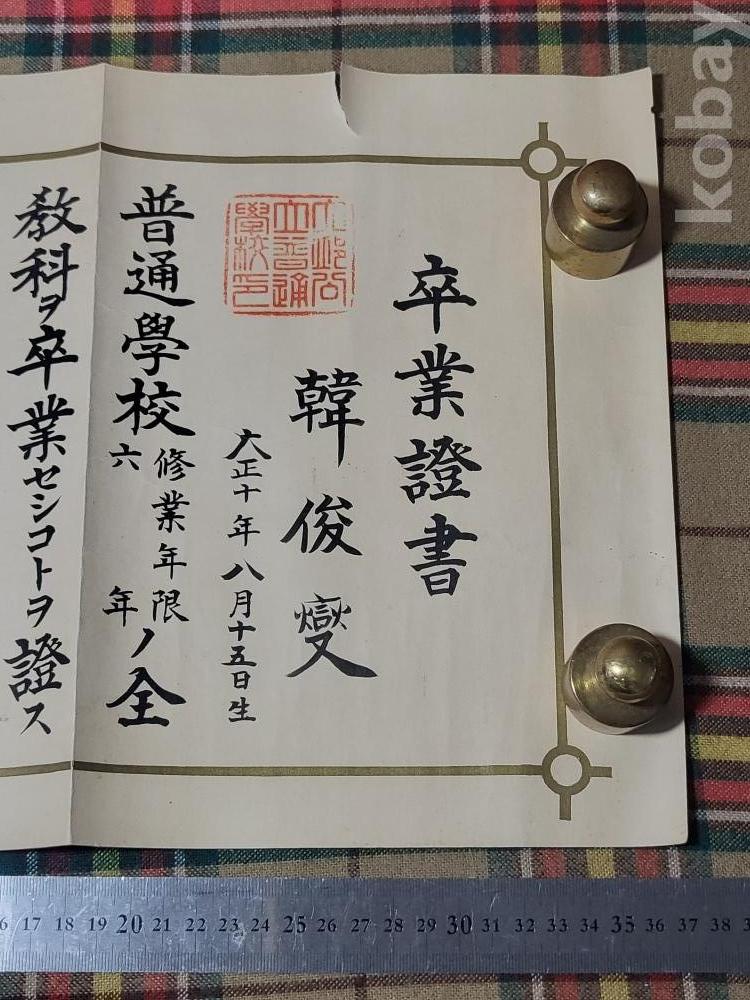 卒業證書
韓俊燮
大正十年八月十五日生
公
立普通
學校印
普通學校修業年限六年ノ全
教科ヲ卒業セシコトヲ證ス
kobay
17 18 19 20 21 22 23 24 25 26 27 28 29 30 31 32 33 34 35 36 37 38